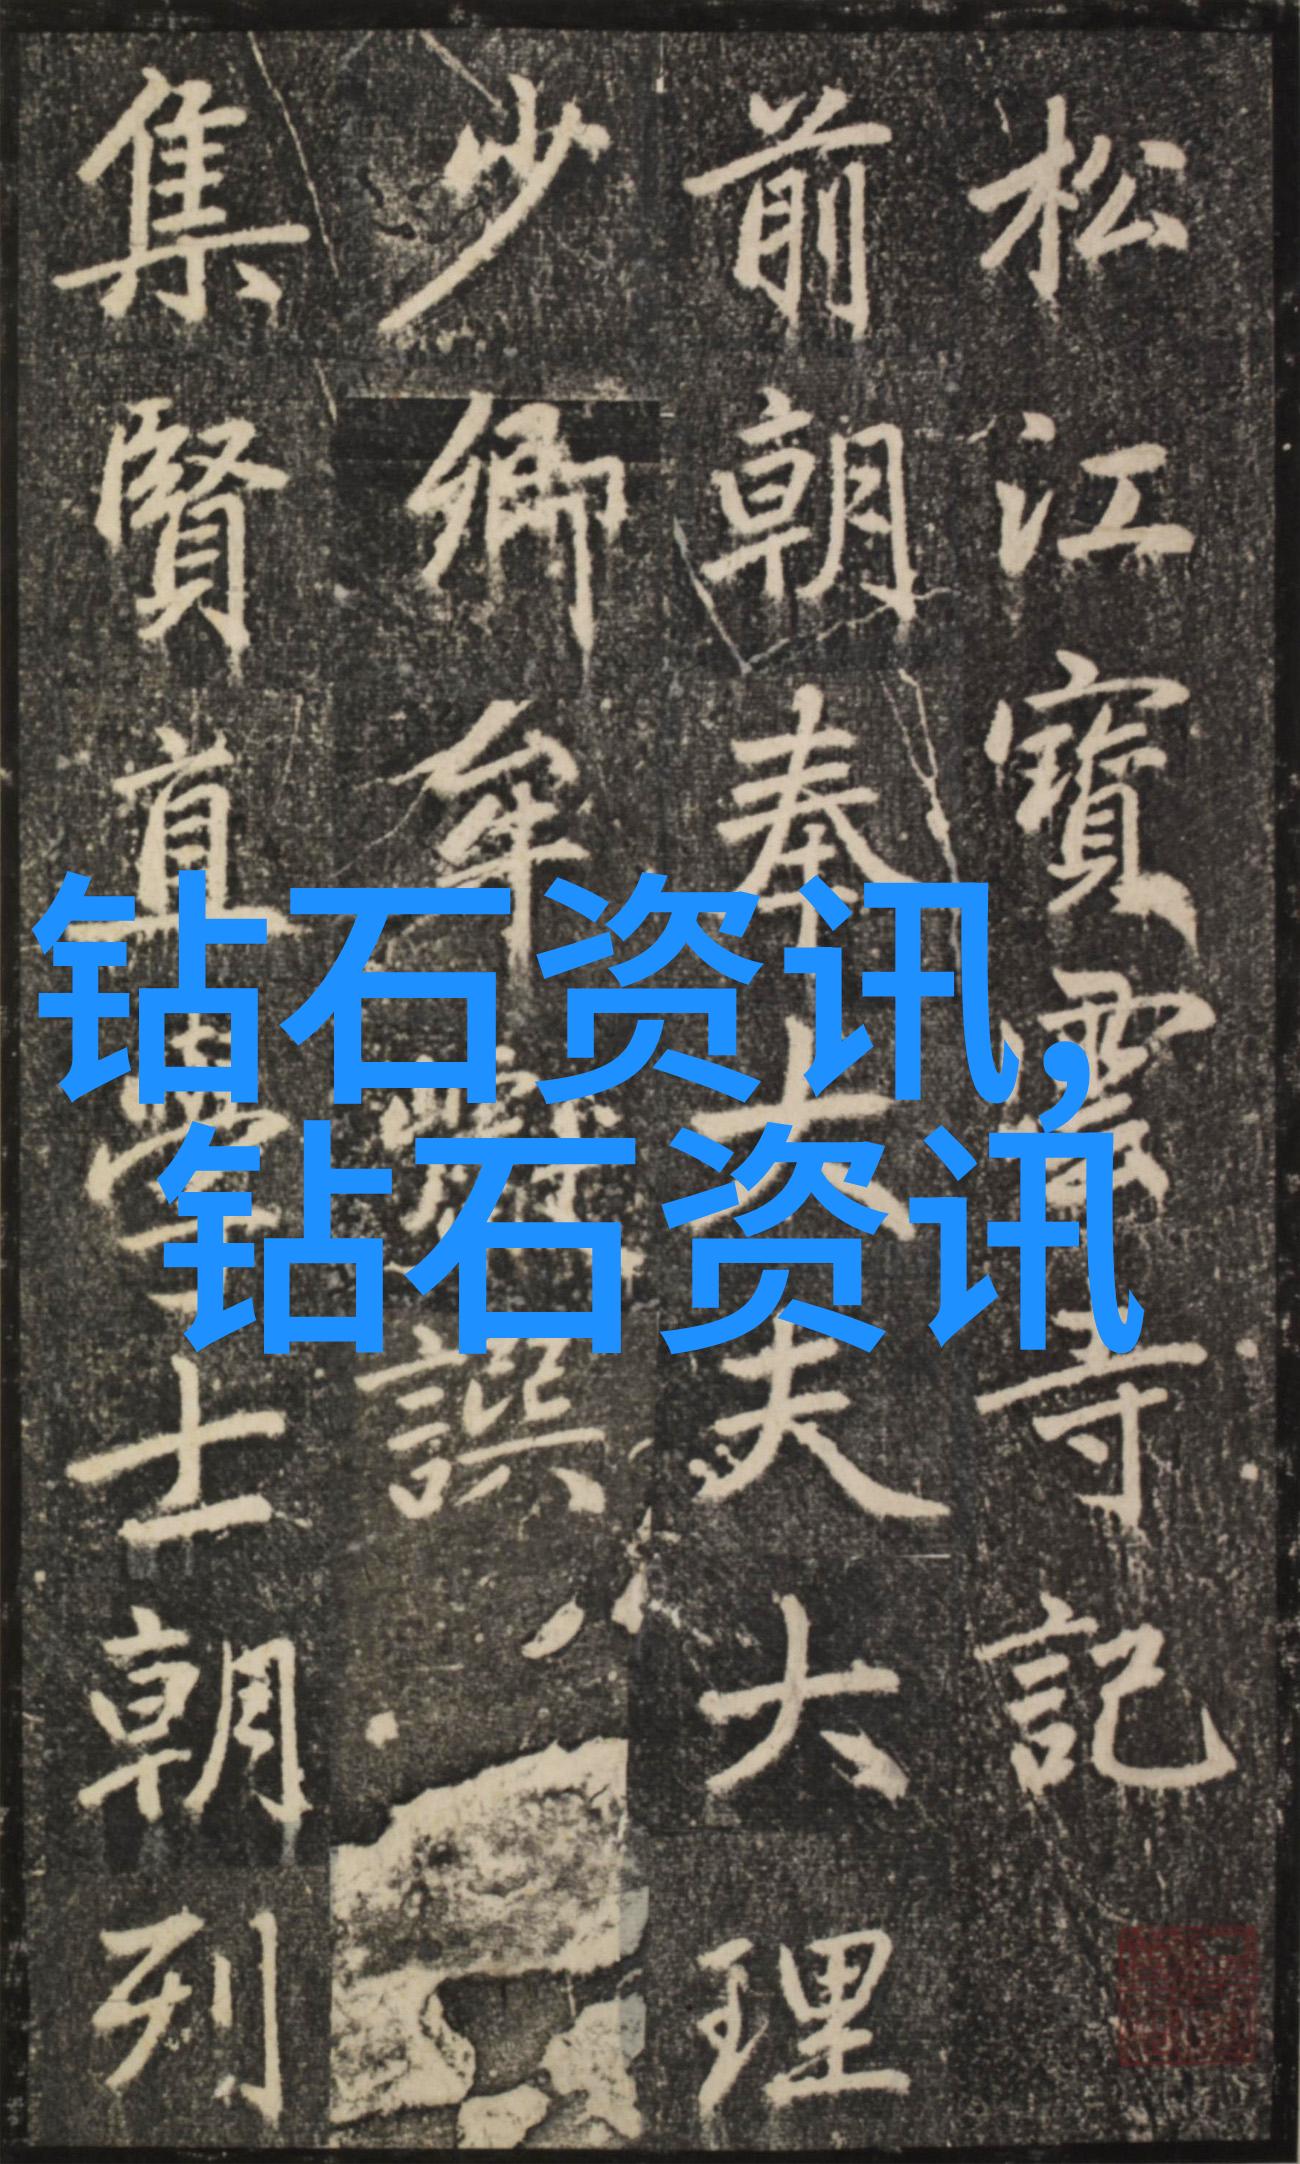 松江寶雲寺記
前朝奉大夫大理
少卿牟巘譔
集賢直學士朝列
钻石资讯,
钻石资讯